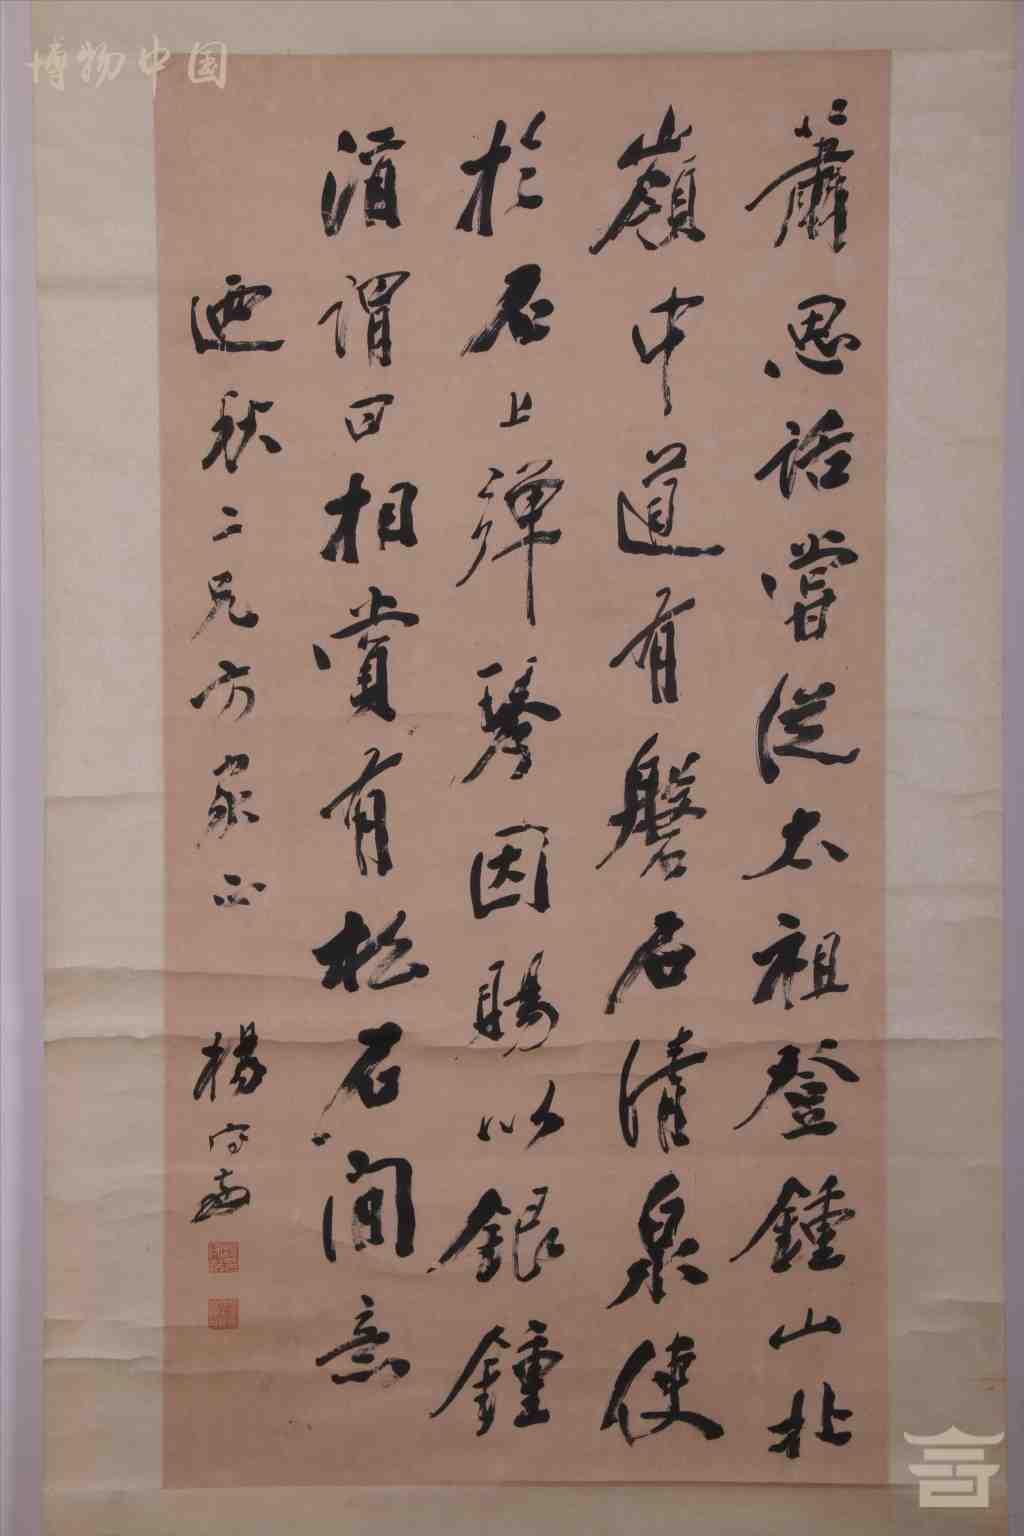 蕭思話嘗從太祖登鍾山北
嶺中道有磐石清泉使
於石上彈琴因賜以銀鍾
酒謂曰相賞有松石間意
秋二兄方家正
楊守敬
博物中国